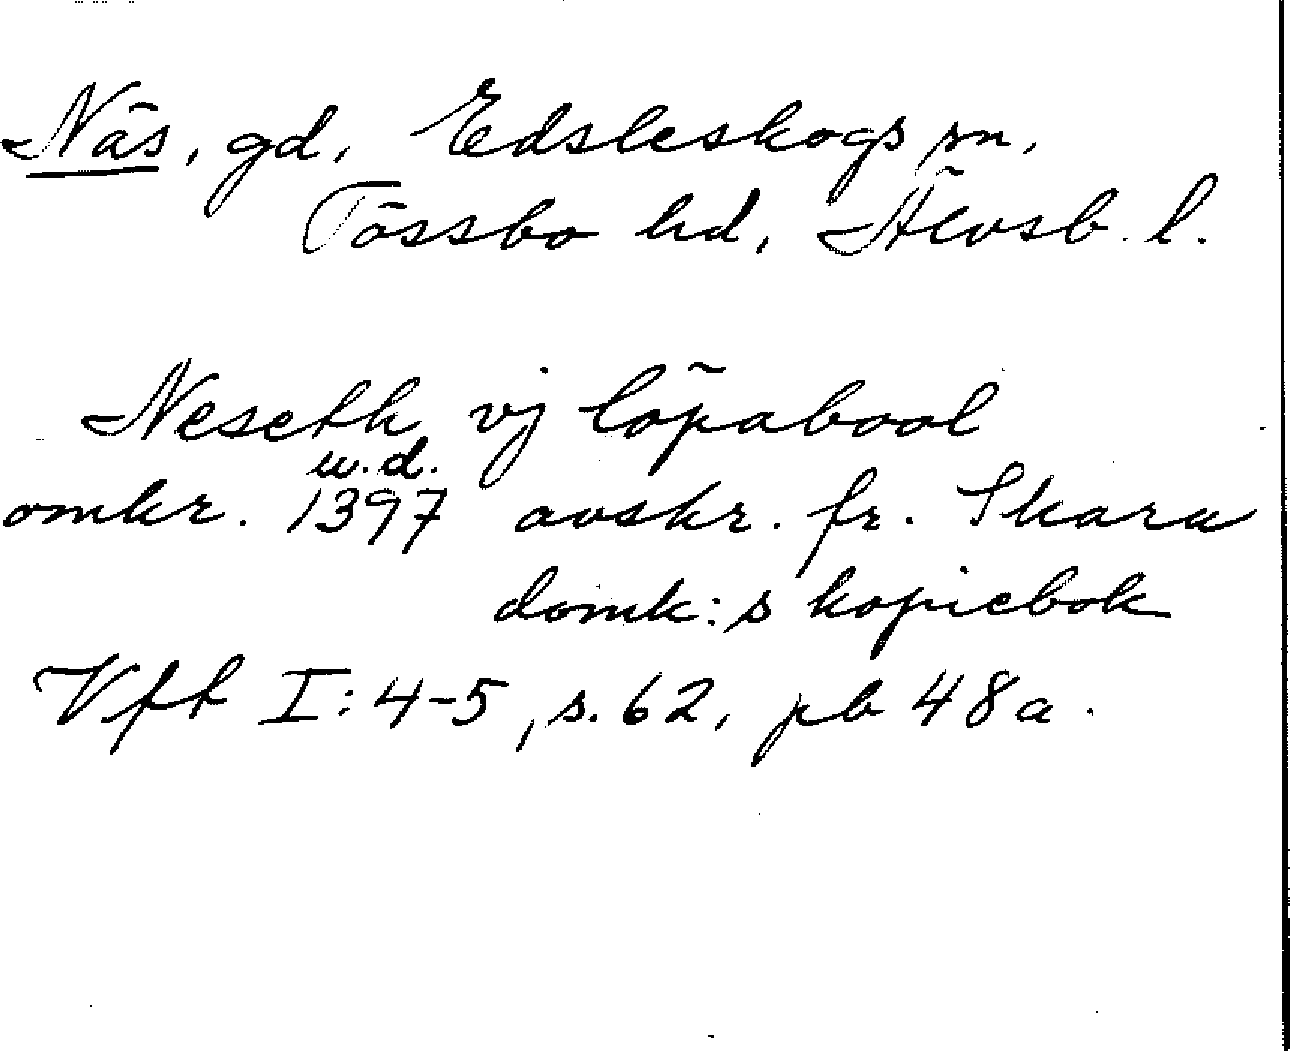 Näs, gd, Edsleskogs sn,
Tössbo hd, Älvsb. l.
Neseth vj löpabool
u.d.
omkr. 1397 avskr. fr. Skara
domk:s kopiebok
Vft I:4-5, s. 62, pb 48a.